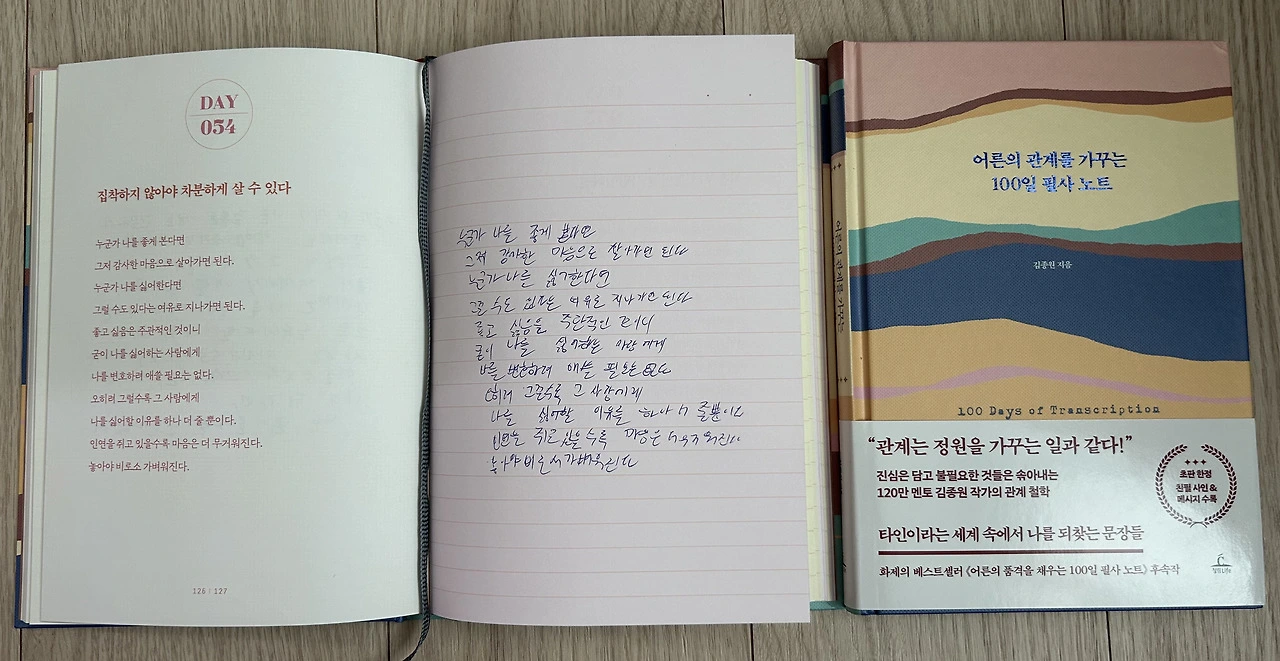 DAY
054
집착하지 않아야 차분하게 살 수 있다
누군가 나를 좋게 본다면
그저 감사한 마음으로 살아가면 된다.
누군가 나를 싫어한다면
그럴 수도 있다는 여유로 지나가면 된다.
좋고 싫음은 주관적인 것이니
굳이 나를 싫어하는 사람에게
나를 변호하려 애쓸 필요는 없다.
오히려 그럴수록 그 사람에게
나를 싫어할 이유를 하나 더 줄 뿐이다.
인연을 쥐고 있을수록 마음은 더 무거워진다.
놓아야 비로소 가벼워진다.
126 | 127
누군가 나를 좋게 본다면
그저 감사한 마음으로 살아가면 된다
누군가 나를 싫어한다면
그럴 수도 있다는 여유로 지나가면 된다
좋고 싫음은 주관적인 것이니
굳이 나를 싫어하는 사람에게
나를 변호하려 애쓸 필요는 없다
오히려 그럴수록 그 사람에게
나를 싫어할 이유를 하나 더 줄 뿐이다
인연을 쥐고 있을수록 마음은 더 무거워진다
놓아야 비로소 가벼워진다
어른의 관계를 가꾸는
어른의 관계를 가꾸는
100일 필사 노트
김종원 지음
100 Days of Transcription
“관계는 정원을 가꾸는 일과 같다!”
진심은 담고 불필요한 것들은 솎아내는
120만 멘토 김종원 작가의 관계 철학
초판 한정
친필 사인 &
메시지 수록
타인이라는 세계 속에서 나를 되찾는 문장들
화제의 베스트셀러 《어른의 품격을 채우는 100일 필사 노트》 후속작